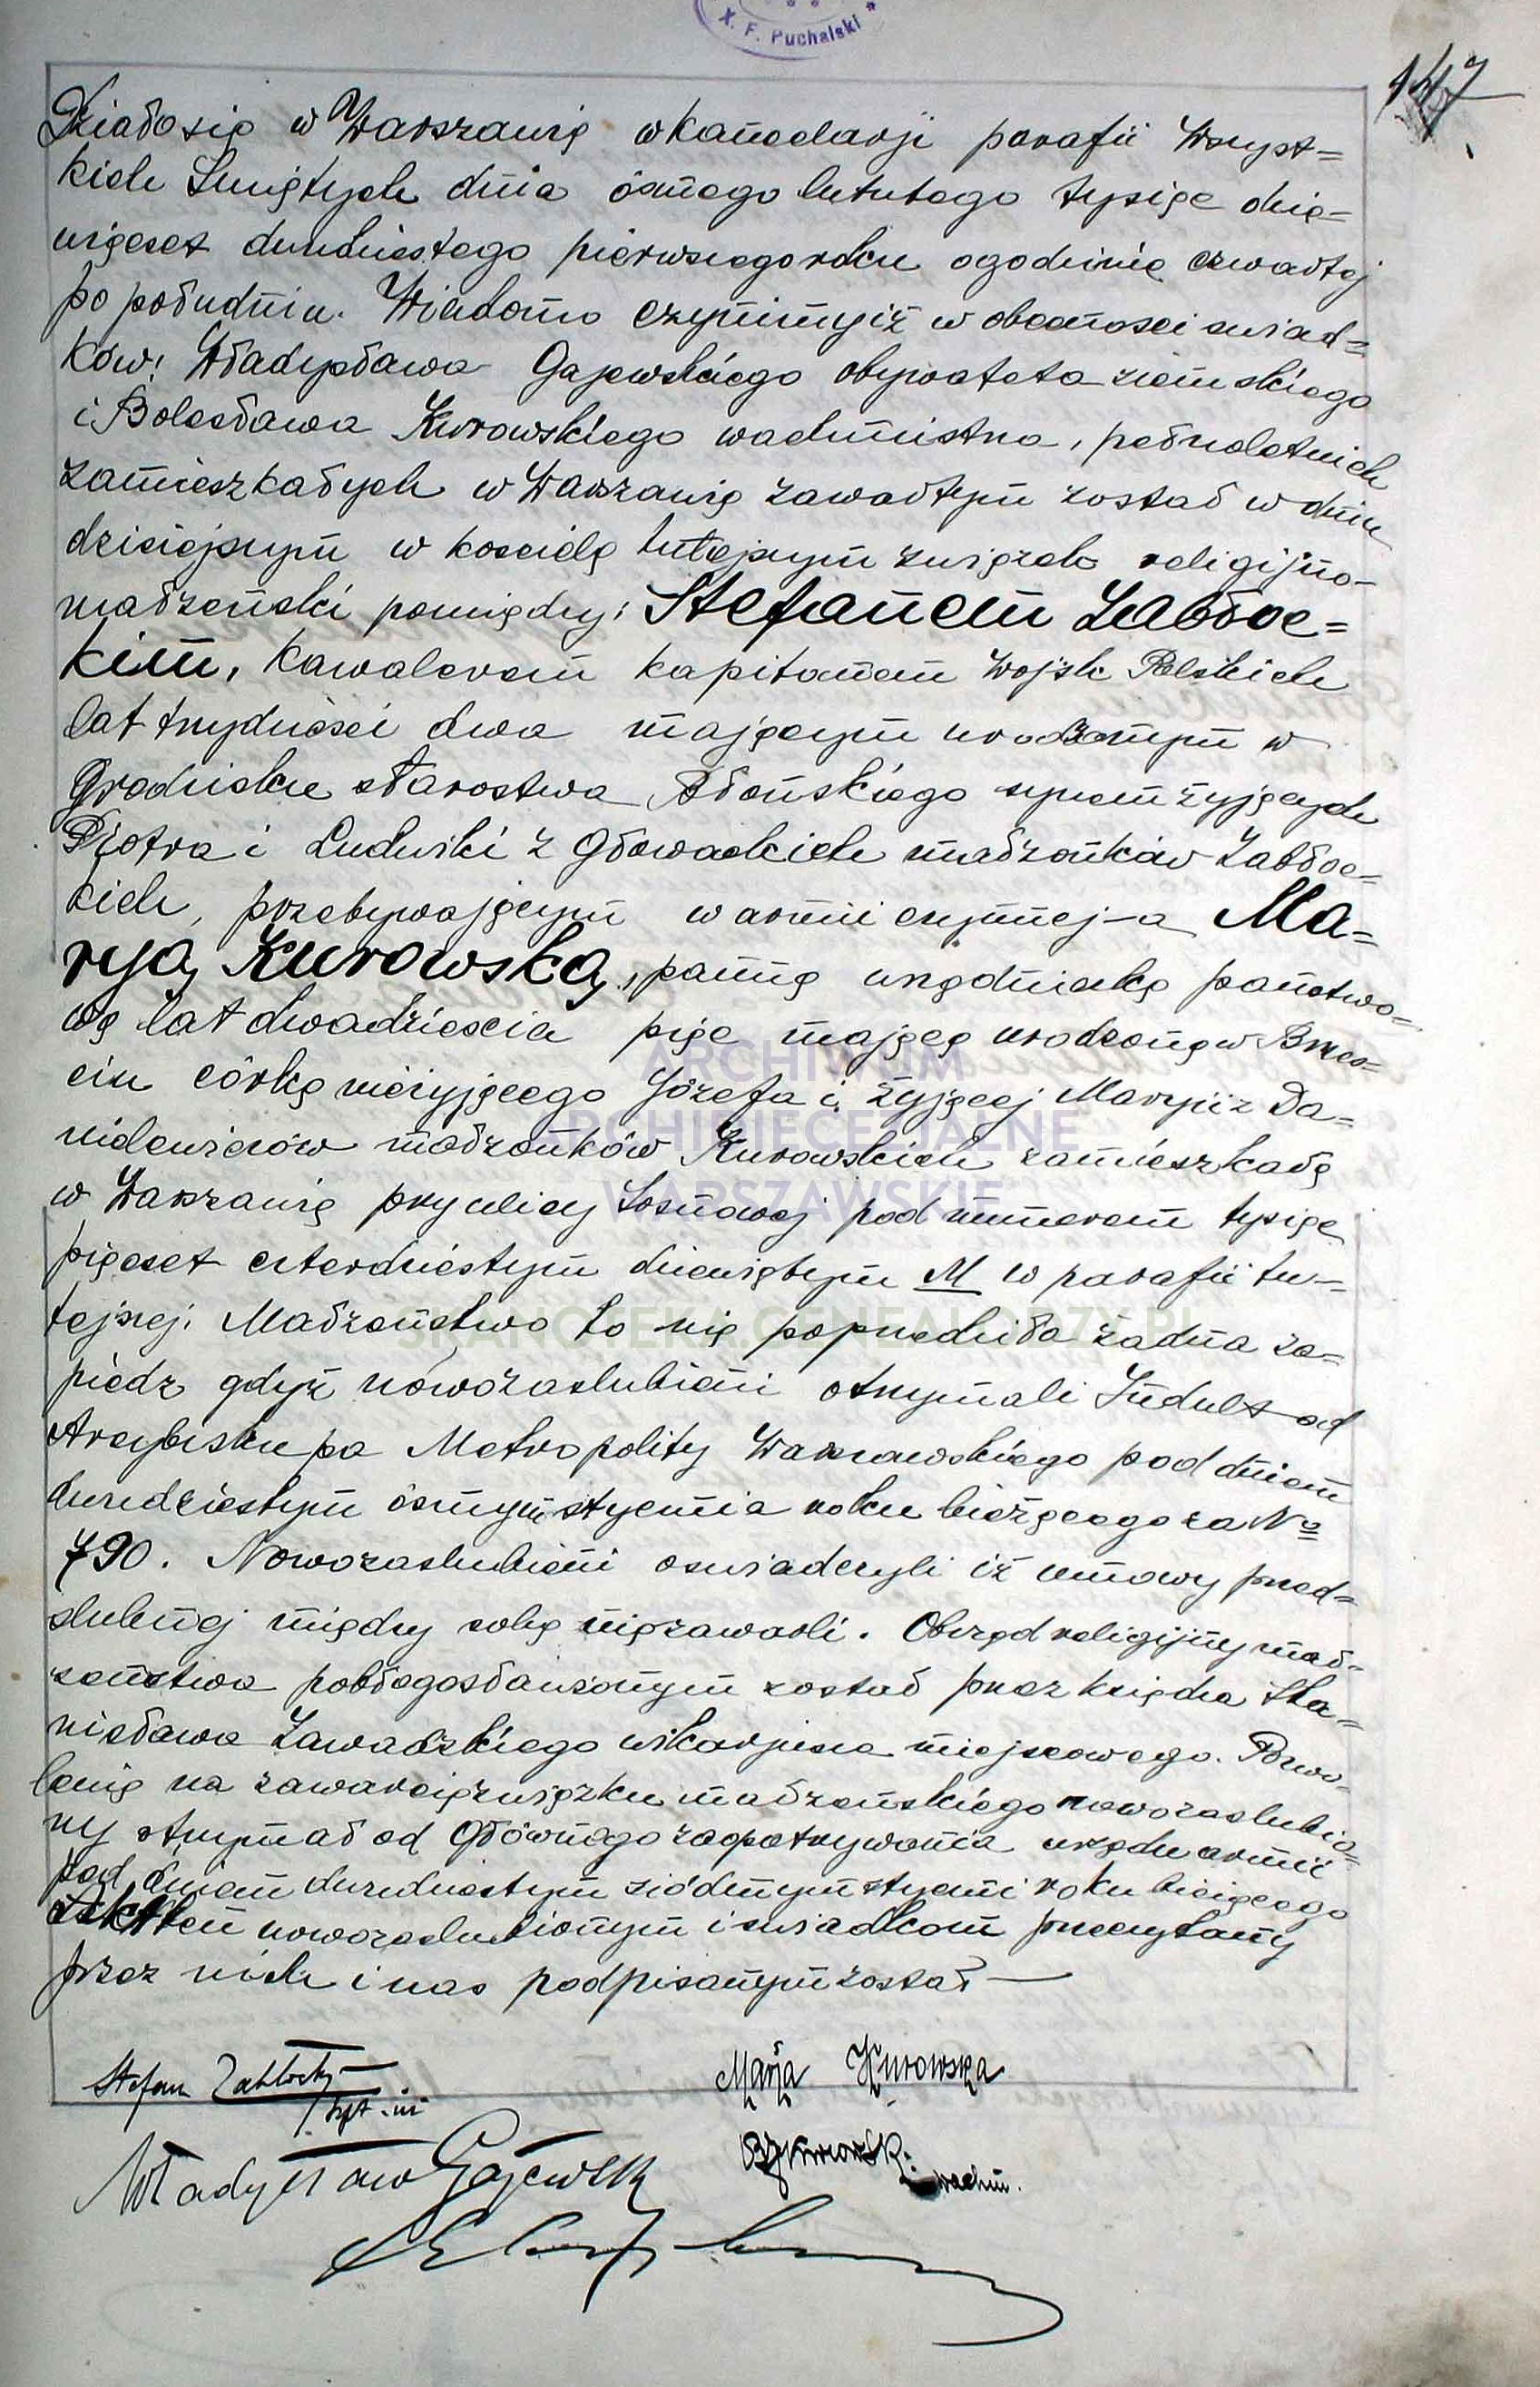 X. F. Puchalski
147
Działo się w Warszawie w kancelarji parafii Wszyst=
kich Świętych dnia ósmego lutego tysiąc dzie=
więćset dwudziestego pierwszego roku o godzinie czwartej
po południu. Wiadomo czynimy iż w obecności świad=
ków: Władysława Gajewskiego obywatela ziemskiego
i Bolesława Kurowskiego wachmistrza, pełnoletnich
zamieszkałych w Warszawie zawartym został w dniu
dzisiejszym w kościele tutejszym związek religijno-
małżeński pomiędzy: Stefanem Zabłoc=
kim, kawalerem kapitanem Wojsk Polskich
lat trzydzieści dwa mającym urodzonym w
Grodzisku starostwa Błońskiego synem żyjących
Piotra i Ludwiki z Głowackich małżonków Zabłoc=
kich, przebywającym w armii czynnej – a Ma=
ryą Kurowską, panną urzędniczką państwo=
wą lat dwadzieścia pięć mającą urodzoną w Brześ=
ciu córką nieżyjącego Józefa i żyjącej Maryi z Da=
nilewiczów małżonków Kurowskich zamieszkałą
w Warszawie przy ulicy Sosnowej pod numerem tysiąc
pięćset czterdziestym dziewiątym M w parafii tu=
tejszej. Małżeństwo to nie poprzedziła żadna za=
piedź gdyż nowozaślubieni otrzymali Indult od
Arcybiskupa Metropolity Warszawskiego pod dniem
dwudziestym ósmym stycznia roku bieżącego za No
790. Nowozaślubieni oświadczyli iż umowy przed=
ślubnej między sobą nie zawarli. Obrzęd religijny mał=
żeństwa pobłogosławionym został przez księdza Sta=
nisława Zawadzkiego wikarjusza miejscowego. Pozwo=
lenie na zawarcie związku małżeńskiego nowozaślubio=
ny otrzymał od Głównego zaopatrywania urzędu armii
pod dniem dwudziestym siódmym styczni roku bieżącego
Akt ten nowozaślubionym i świadkom przeczytany
przez nich i nas podpisanym został —
Stefan Zabłocki
kpt.
Marja Kurowska
Władysław Gajewski
B. Kurowski
wachm.
ARCHIWUM
ARCHIDIECEZJALNE
WARSZAWSKIE
SKANOTEKA.GENEALODZY.PL